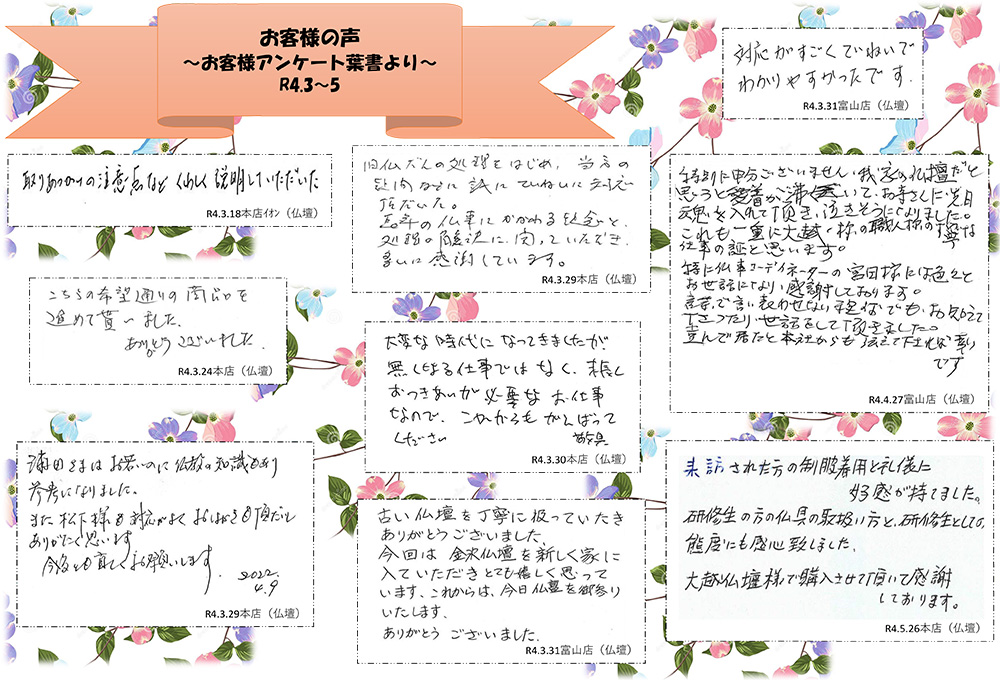 お客様の声
～お客様アンケート葉書より～
R4.3～5
対応がすごくていねいで
わかりやすかったです。
R4.3.31富山店（仏壇）
取りあつかいの注意点など くわしく説明していただいた
R4.3.18本店ｲｵﾝ（仏壇）
旧仏だんの処理をはじめ、当方の
質問などに誠にていねいに対応
頂だいた。
長年の仏事にかかわる疑念と、
処理の解決に関っていただき、
多いに感謝しています。
R4.3.29本店（仏壇）
特別に申分ございません。我家の仏壇だと
思うと愛着が沸いて、お寺さんに先日
魂を入れて頂き、泣きそうになりました。
これも一重に大越 様の職人様の丁寧な
仕事の証と思います。
特に仏事コーディネーターの宮田様には色々と
お世話になり、感謝しております。
言葉で言い表わせない程
世話をして頂きました。
喜んで居たと本社からも伝えて下されば幸い
です
R4.4.27富山店（仏壇）
こちらの希望通りの商談を
進めて貰いました。
ありがとうございました。
R4.3.24本店（仏壇）
大変な時代になってきましたが
無くなる仕事ではなく、末長く
おつきあいが必要なお仕事
なので、これからもがんばって
ください
R4.3.30本店（仏壇）
浦田さまはお若いのに仏教の知識もあり
参考になりました。
また松下様も対応がよく
ありがたく思います
今後とも宜しくお願いします。
2022.
4.9
R4.3.29本店（仏壇）
古い仏壇を丁寧に扱っていたき
ありがとうございました。
今回は 金沢仏壇を新しく家に
入ていただきとても嬉しく思って
います、これからは、今日仏壇を御参り
いたします、
ありがとう ございました。
R4.3.31富山店（仏壇）
来訪された方の制服着用と礼儀に
好感が持てました。
研修生の方の仏具の取扱い方と、研修生としての
態度にも感心致しました。
大越仏壇様で購入させて頂いて感謝
しております。
R4.5.26本店（仏壇）